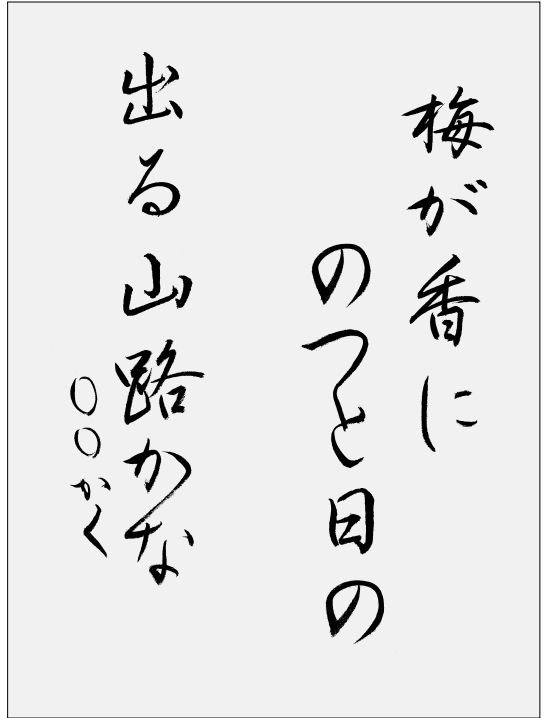 梅が香に
のつと日の
出る山路かな
〇〇かく